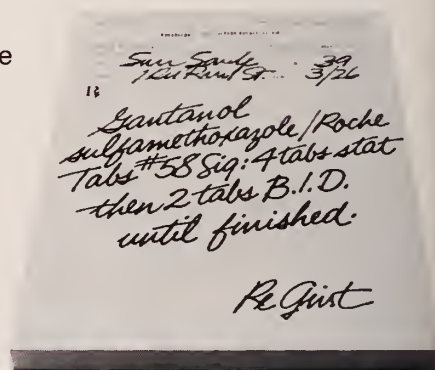 e
39
St. 3/26
℞
Gantanol
sulfamethoxazole/Roche
Tabs #58 Sig: 4 tabs stat
then 2 tabs B.I.D.
until finished.